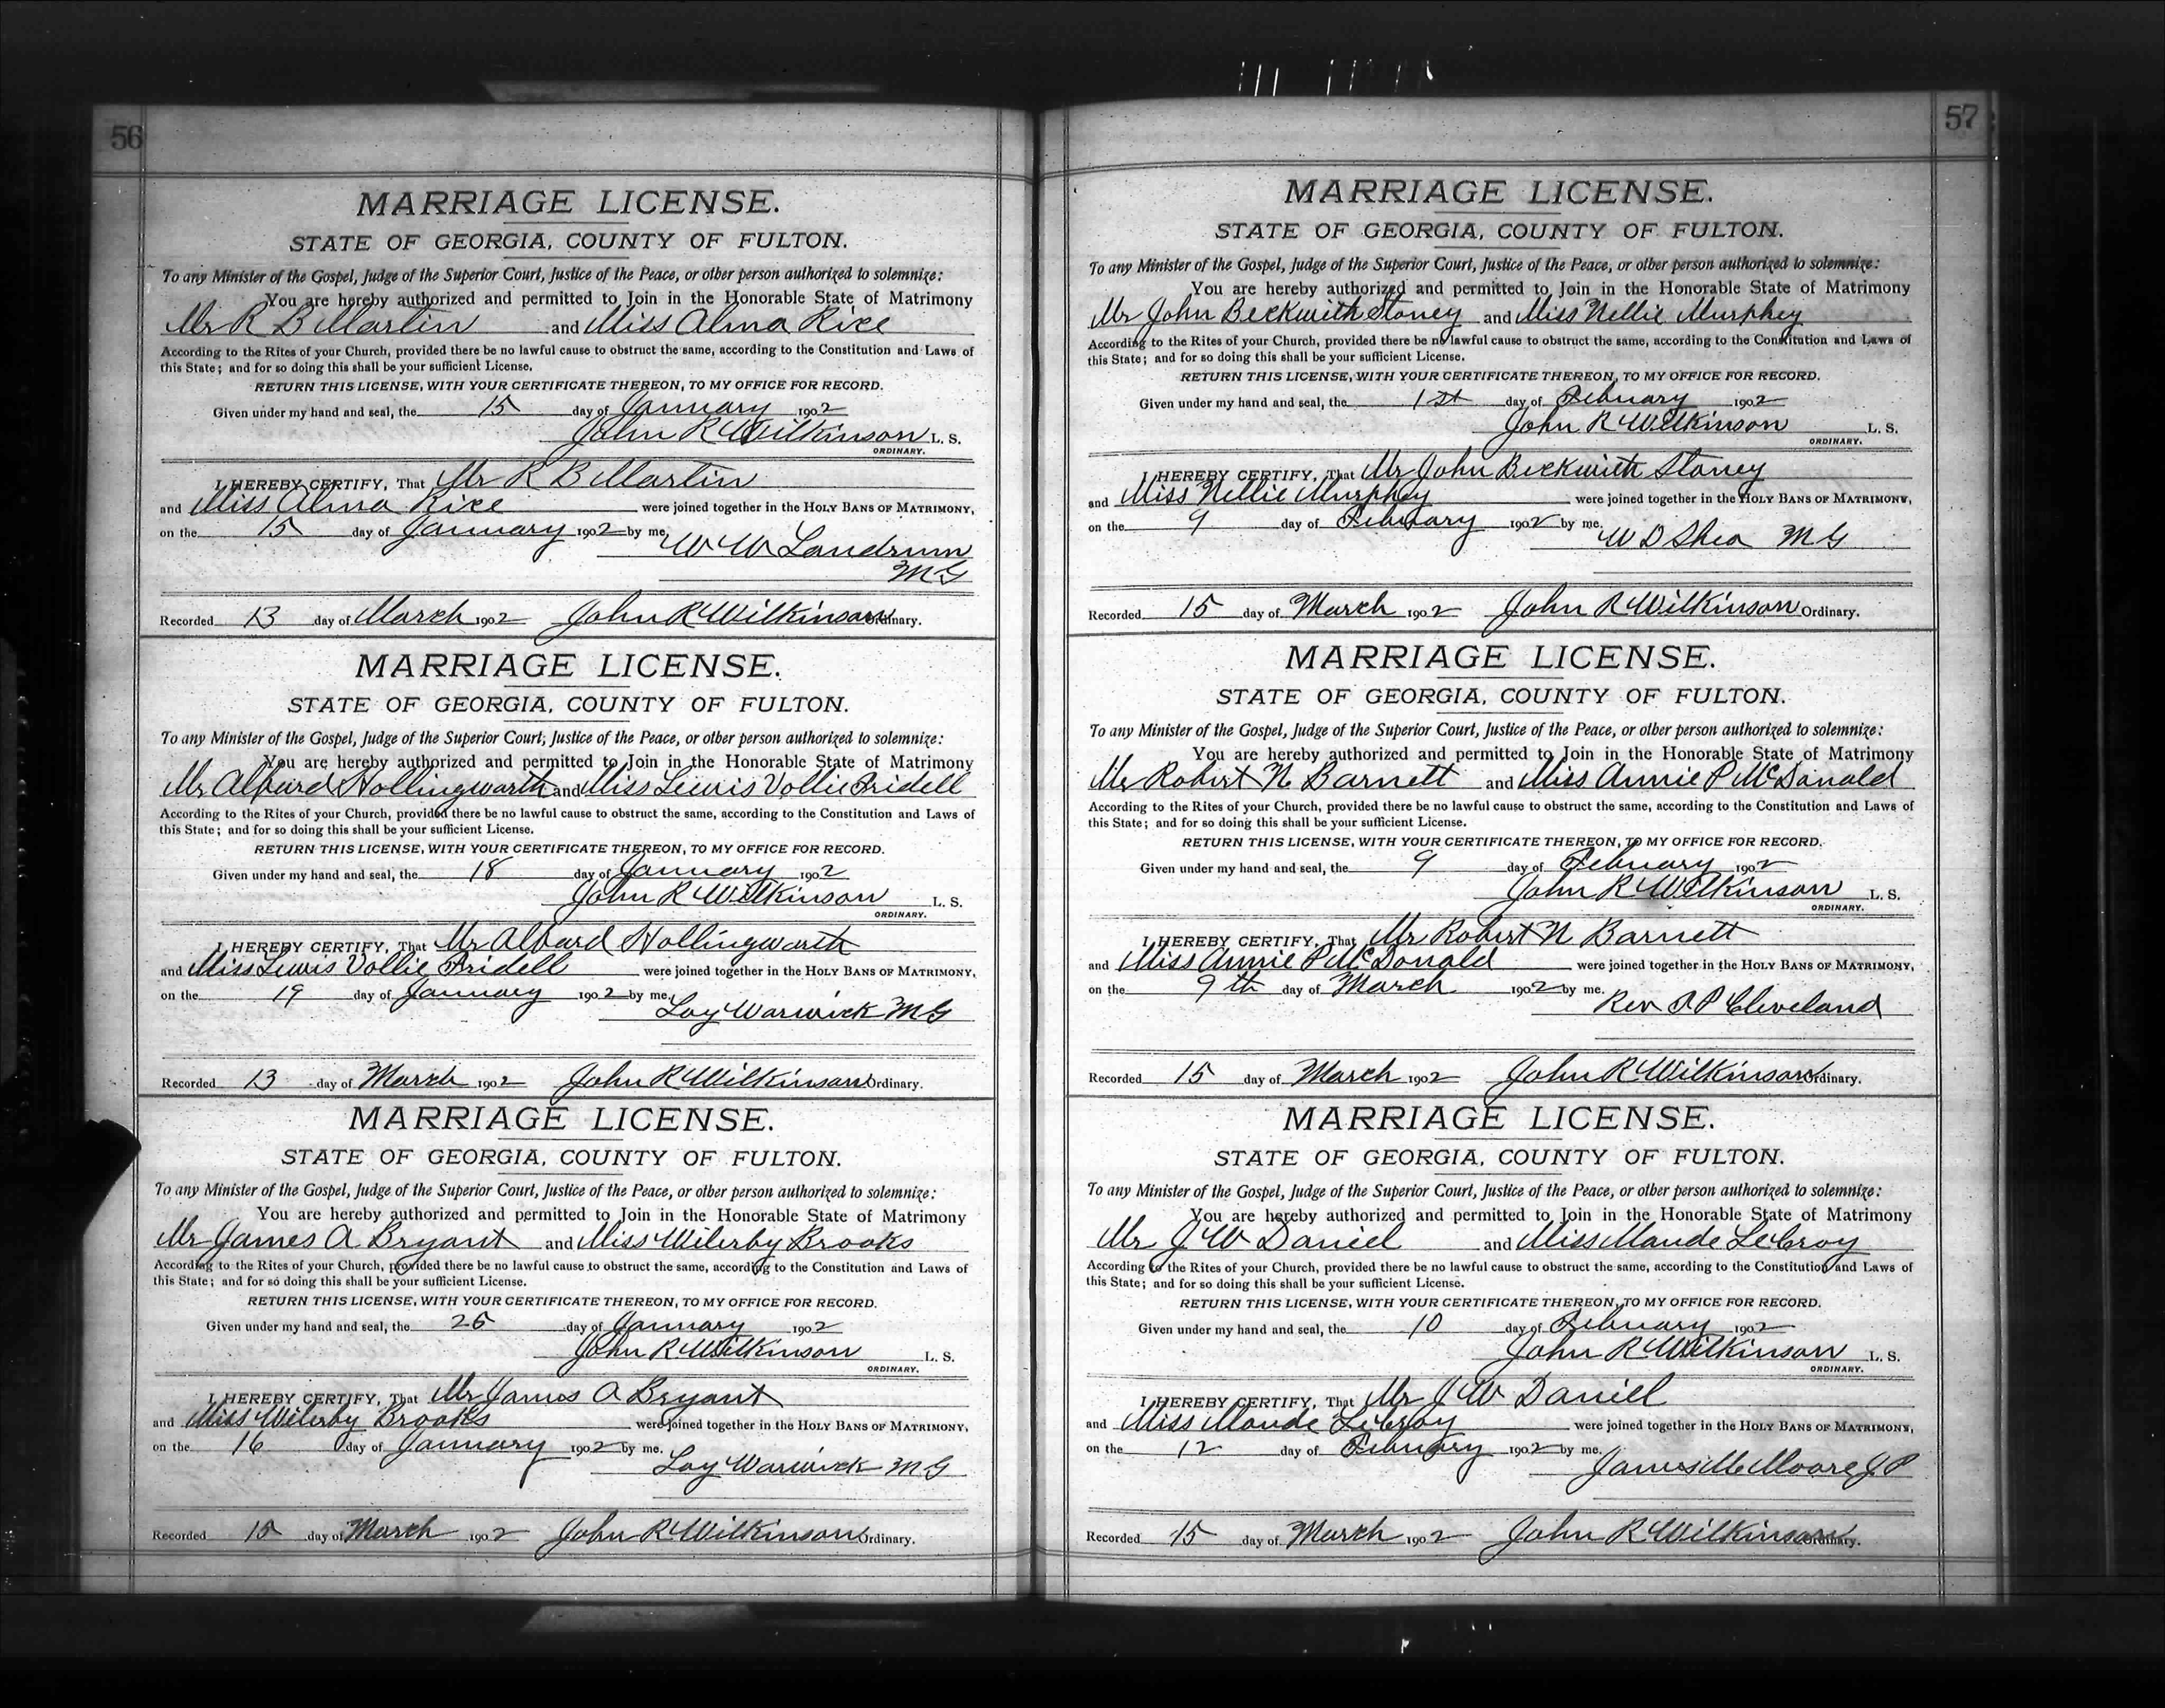 56
MARRIAGE LICENSE.
STATE OF GEORGIA, COUNTY OF FULTON.
To any Minister of the Gospel, Judge of the Superior Court, Justice of the Peace, or other person authorized to solemnize:
You are hereby authorized and permitted to Join in the Honorable State of Matrimony
Mr R B Martin and Miss Alma Rice
According to the Rites of your Church, provided there be no lawful cause to obstruct the same, according to the Constitution and Laws of
this State; and for so doing this shall be your sufficient License.
RETURN THIS LICENSE, WITH YOUR CERTIFICATE THEREON, TO MY OFFICE FOR RECORD.
Given under my hand and seal, the 15 day of January 1902
John R Wilkinson L. S.
ORDINARY.
I HEREBY CERTIFY, That Mr R B Martin
and Miss Alma Rice were joined together in the HOLY BANS OF MATRIMONY,
on the 15 day of January 1902 by me,
W W Landrum
M G
Recorded 13 day of March 1902 John R Wilkinson Ordinary.
MARRIAGE LICENSE.
STATE OF GEORGIA, COUNTY OF FULTON.
To any Minister of the Gospel, Judge of the Superior Court, Justice of the Peace, or other person authorized to solemnize:
You are hereby authorized and permitted to Join in the Honorable State of Matrimony
Mr Alburd Hollingworth and Miss Lewis Vollie Fridell
According to the Rites of your Church, provided there be no lawful cause to obstruct the same, according to the Constitution and Laws of
this State; and for so doing this shall be your sufficient License.
RETURN THIS LICENSE, WITH YOUR CERTIFICATE THEREON, TO MY OFFICE FOR RECORD.
Given under my hand and seal, the 18 day of January 1902
John R Wilkinson L. S.
ORDINARY.
I HEREBY CERTIFY, That Mr Alburd Hollingworth
and Miss Lewis Vollie Fridell were joined together in the HOLY BANS OF MATRIMONY,
on the 19 day of January 1902 by me,
Loy Warwick M G
Recorded 13 day of March 1902 John R Wilkinson Ordinary.
MARRIAGE LICENSE.
STATE OF GEORGIA, COUNTY OF FULTON.
To any Minister of the Gospel, Judge of the Superior Court, Justice of the Peace, or other person authorized to solemnize:
You are hereby authorized and permitted to Join in the Honorable State of Matrimony
Mr James A Bryant and Miss Wilerby Brooks
According to the Rites of your Church, provided there be no lawful cause to obstruct the same, according to the Constitution and Laws of
this State; and for so doing this shall be your sufficient License.
RETURN THIS LICENSE, WITH YOUR CERTIFICATE THEREON, TO MY OFFICE FOR RECORD.
Given under my hand and seal, the 25 day of January 1902
John R Wilkinson L. S.
ORDINARY.
I HEREBY CERTIFY, That Mr James A Bryant
and Miss Wilerby Brooks were joined together in the HOLY BANS OF MATRIMONY,
on the 16 day of January 1902 by me,
Loy Warwick M G
Recorded 15 day of March 1902 John R Wilkinson Ordinary.
57
MARRIAGE LICENSE.
STATE OF GEORGIA, COUNTY OF FULTON.
To any Minister of the Gospel, Judge of the Superior Court, Justice of the Peace, or other person authorized to solemnize:
You are hereby authorized and permitted to Join in the Honorable State of Matrimony
Mr John Beckwith Stoney and Miss Nellie Murphey
According to the Rites of your Church, provided there be no lawful cause to obstruct the same, according to the Constitution and Laws of
this State; and for so doing this shall be your sufficient License.
RETURN THIS LICENSE, WITH YOUR CERTIFICATE THEREON, TO MY OFFICE FOR RECORD.
Given under my hand and seal, the 1st day of February 1902
John R Wilkinson L. S.
ORDINARY.
I HEREBY CERTIFY, That Mr John Beckwith Stoney
and Miss Nellie Murphey were joined together in the HOLY BANS OF MATRIMONY,
on the 9 day of February 1902 by me,
W D Shea M G
Recorded 15 day of March 1902 John R Wilkinson Ordinary.
MARRIAGE LICENSE.
STATE OF GEORGIA, COUNTY OF FULTON.
To any Minister of the Gospel, Judge of the Superior Court, Justice of the Peace, or other person authorized to solemnize:
You are hereby authorized and permitted to Join in the Honorable State of Matrimony
Mr Robert N Barnett and Miss Annie P McDonald
According to the Rites of your Church, provided there be no lawful cause to obstruct the same, according to the Constitution and Laws of
this State; and for so doing this shall be your sufficient License.
RETURN THIS LICENSE, WITH YOUR CERTIFICATE THEREON, TO MY OFFICE FOR RECORD.
Given under my hand and seal, the 9 day of February 1902
John R Wilkinson L. S.
ORDINARY.
I HEREBY CERTIFY, That Mr Robert N Barnett
and Miss Annie P McDonald were joined together in the HOLY BANS OF MATRIMONY,
on the 9th day of March 1902 by me,
Rev A P Cleveland
Recorded 15 day of March 1902 John R Wilkinson Ordinary.
MARRIAGE LICENSE.
STATE OF GEORGIA, COUNTY OF FULTON.
To any Minister of the Gospel, Judge of the Superior Court, Justice of the Peace, or other person authorized to solemnize:
You are hereby authorized and permitted to Join in the Honorable State of Matrimony
Mr J W Daniel and Miss Maude LeCroy
According to the Rites of your Church, provided there be no lawful cause to obstruct the same, according to the Constitution and Laws of
this State; and for so doing this shall be your sufficient License.
RETURN THIS LICENSE, WITH YOUR CERTIFICATE THEREON, TO MY OFFICE FOR RECORD.
Given under my hand and seal, the 10 day of February 1902
John R Wilkinson L. S.
ORDINARY.
I HEREBY CERTIFY, That Mr J W Daniel
and Miss Maude LeCroy were joined together in the HOLY BANS OF MATRIMONY,
on the 12 day of February 1902 by me,
James M Moore J P
Recorded 15 day of March 1902 John R Wilkinson Ordinary.